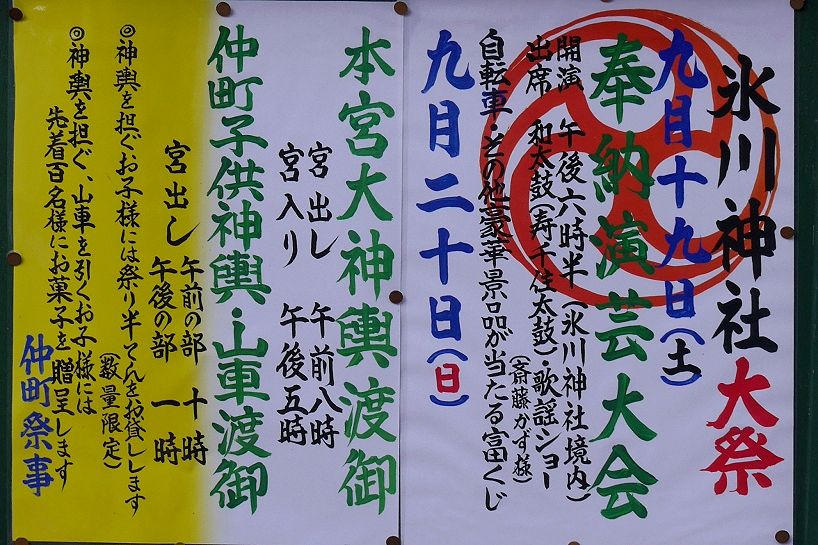 氷川神社大祭
九月十九日(土)
奉納演芸大会
開演 午後六時半(氷川神社境内)
出席 和太鼓(寿千住太鼓)歌謡ショー
(斎藤かず様)
自転車・その他豪華景品が当たる富くじ
九月二十日(日)
本宮大神輿渡御
宮出し 午前八時
宮入り 午後五時
仲町子供神輿・山車渡御
宮出し 午前の部 十時
午後の部 一時
◎神輿を担ぐお子様には祭り半てんをお貸しします
(数量限定)
◎神輿を担ぐ、山車を引くお子様には
先着百名様にお菓子を贈呈します
仲町祭事